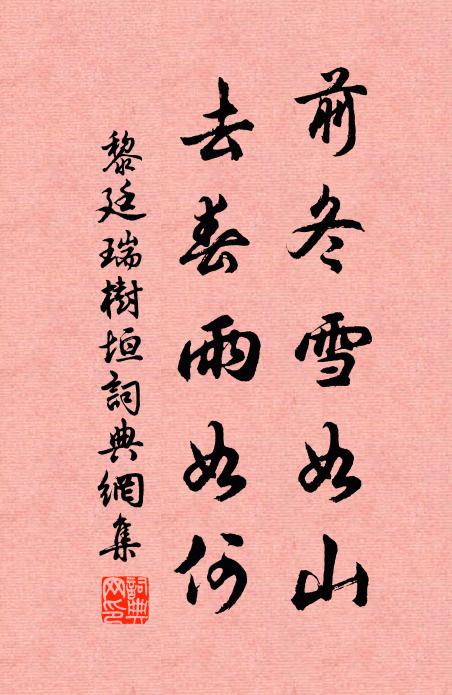 前冬雪如山
去春雨如何
黎廷瑞樹垣詞典網集
詞典网印